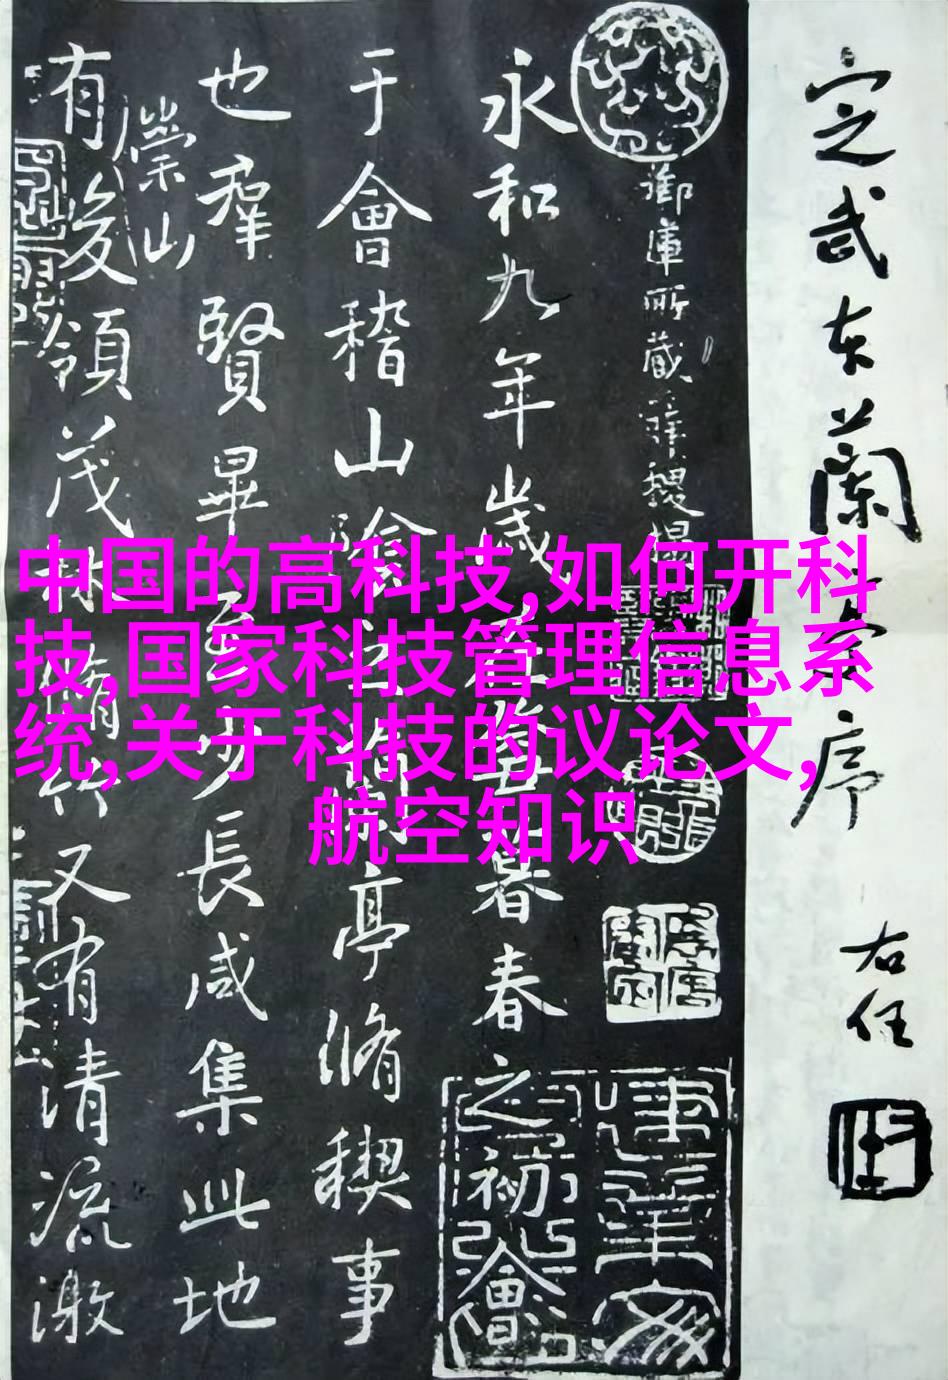 定武本蘭亭序
右任
御庫所藏
永和九年歲在癸丑暮春之初會
于會稽山陰之蘭亭脩稧事
也羣賢畢至少長咸集此地
崇山
有峻領茂林脩竹又有清流激
中国的高科技,如何开科
技,国家科技管理信息系
统,关于科技的议论文,
航空知识